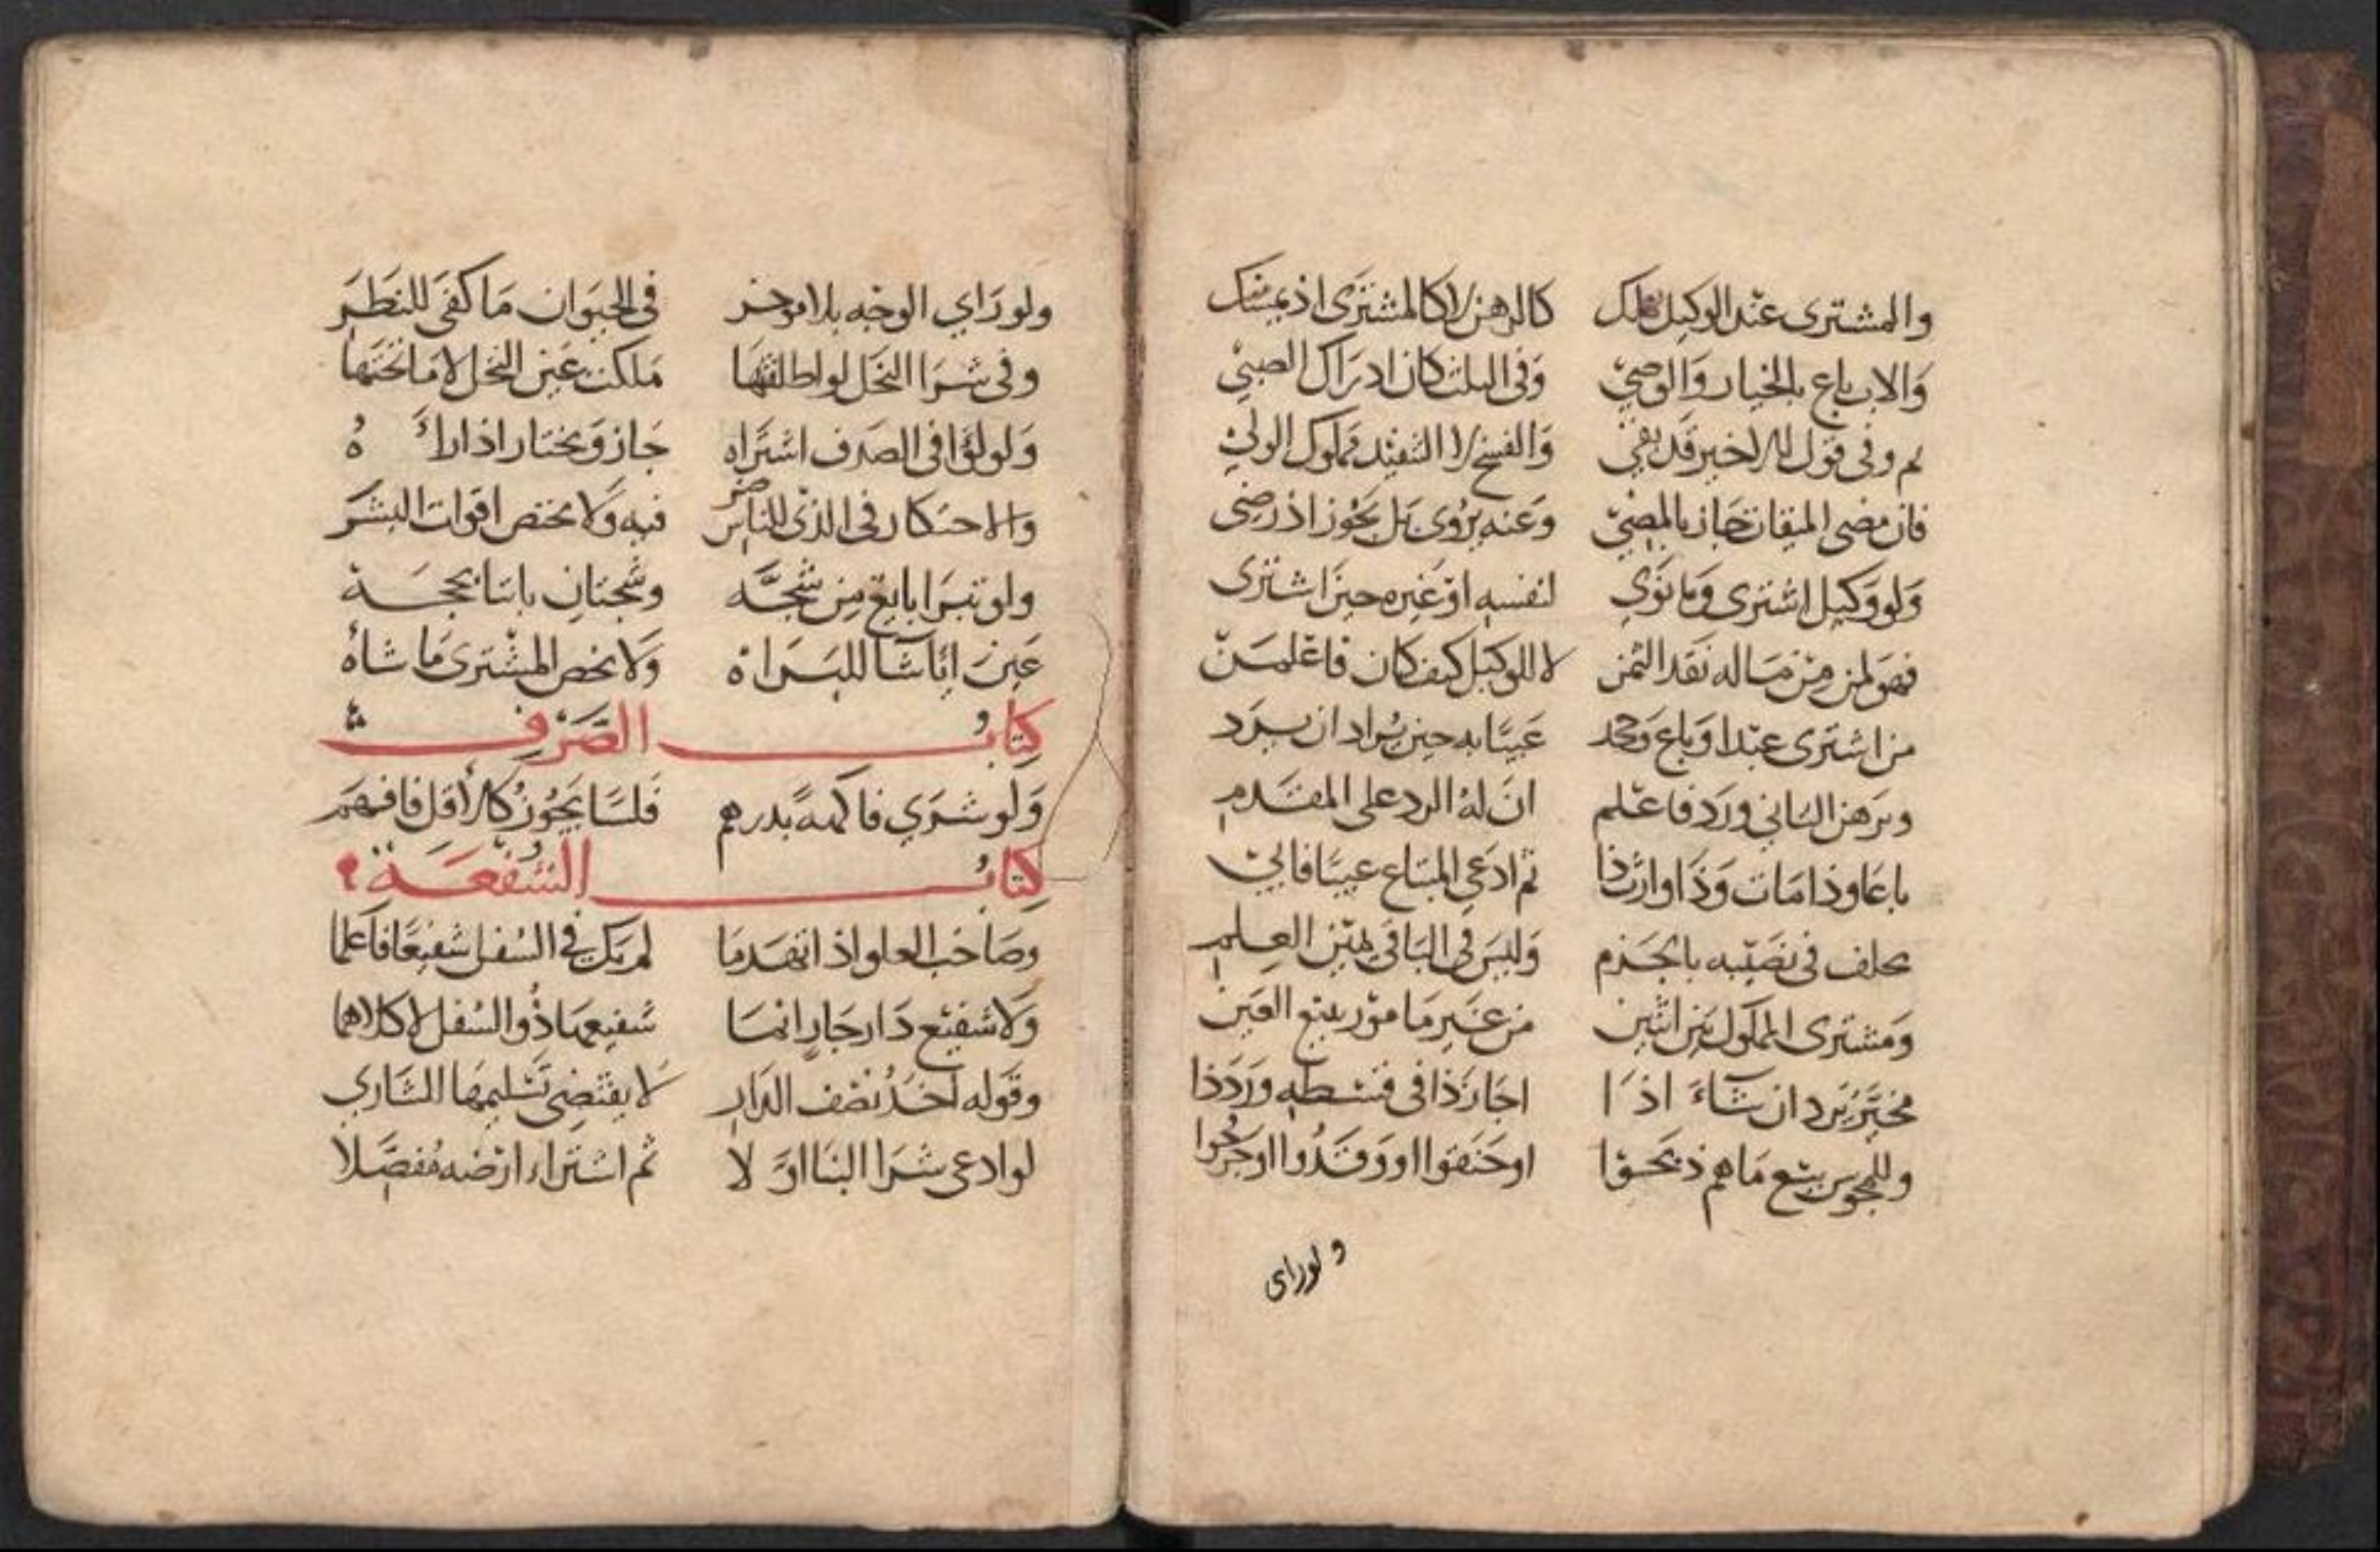 والمشترى عند الوكيل كالرهن لا كالمشترى اذ يمسك
والاب باع بالخيار والوصي وفى الثلث كان ادراك الصبي
تم وفى قول له اخير قد بقي والفسخ لا التنفيذ مملوك الولي
فان مضى الميقات جاز بالمضي وعنه يروى بل يجوز اذ رضى
ولو وكيل اشترى وما نوي لنفسه او غيره حين اشترى
فهو لمن من ماله نقد الثمن لا للوكيل كيف كان فاعلمن
من اشترى عبدا وباع وجحد عيبا به حين يراد ان يرد
وبرهن الثانى ورد فاعلم ان له الرد على المقدم
باعا وذا مات وذا وارث ذا ثم ادعى المبتاع عيبا
يحلف فى نصيبه بالجزم وليس فى الباقى يمين العلم
ومشترى المملوك من اثنين من غير ما مور ببيع العين
مخير يرد ان شاء اذا اجاز ذا فى قسطه ورد ذا
وللمجوس بيع ما هم ذبحوا او خنقوا او وقذوا او جرحوا
ولوراى
ولو راي الوجه بلا موخر فى الحيوان ما كفى للنظر
وفى شرا النخل لو اطلقتها ملكت عين النخل لا ما تحتها
ولو لؤلؤا فى الصدف اشتراه جاز ويختار اذا راه
والاحتكار فى الذى للناس ضر فيه ولا يختص اقوات البشر
ولو تبرا بايع من شجه وشجتان باتنا بحجة
عين اياشا للبراة ولا يخص المشترى ما شاه
كتاب الصرف
ولو شري فاكهة بدرهم فلسا يجوز كالاقل فافهم
كتاب الشفعة
وصاحب العلو اذ انهدما لم يك في السفل شفيعا فاعلما
ولا شفيع دار جار انما شفيعها ذو السفل لا كلاهما
وقوله اخذ نصف الدار لا يقتضى تسليمها للشاري
لو ادعى شرا البنا اولا ثم اشتراء ارضه مفصلا